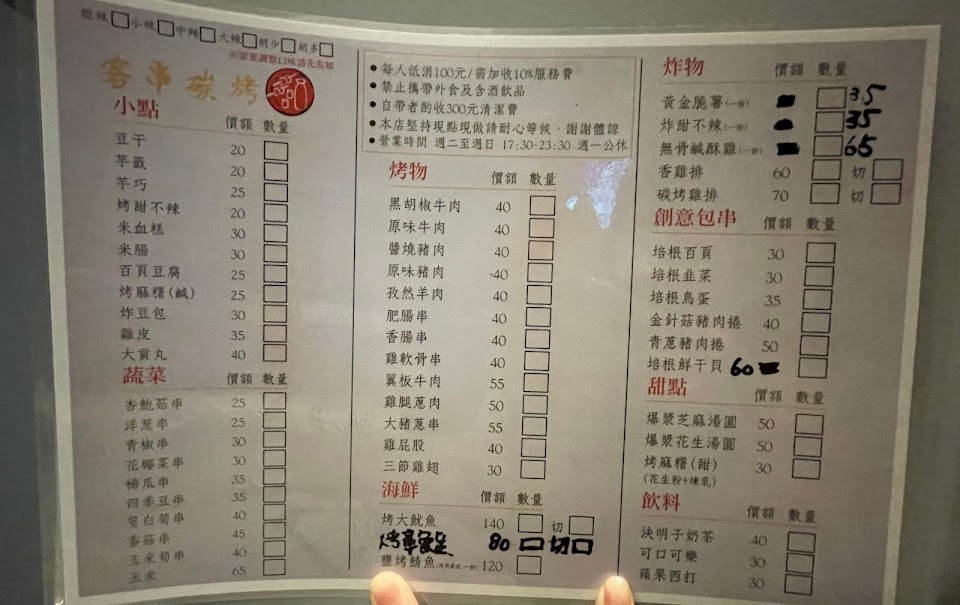 微辣 小辣 中辣 大辣 胡少 胡多
※需要調整口味請先告知
客串碳烤
小點 價額 數量
豆干 20
芋籤 20
芋巧 25
烤甜不辣 20
米血糕 30
米腸 30
百頁豆腐 25
烤麻糬(鹹) 25
炸豆包 30
雞皮 35
大貢丸 40
蔬菜 價額 數量
杏鮑菇串 25
洋蔥串 25
青椒串 30
花椰菜串 30
櫛瓜串 35
四季豆串 35
筊白筍串 40
香菇串 45
玉米筍串 40
玉米 65
•每人低消100元/需加收10%服務費
•禁止攜帶外食及含酒飲品
•自帶者酌收300元清潔費
•本店堅持現點現做請耐心等候,謝謝體諒
•營業時間 週二至週日 17:30-23:30 週一公休
烤物 價額 數量
黑胡椒牛肉 40
原味牛肉 40
醬燒豬肉 40
原味豬肉 40
孜然羊肉 40
肥腸串 40
香腸串 40
雞軟骨串 40
翼板牛肉 55
雞腿蔥肉 50
大豬蔥串 55
雞屁股 40
三節雞翅 30
海鮮 價額 數量
烤大魷魚 140 切
80 切
鹽烤鯖魚 120
炸物 價額 數量
黃金脆薯(一份) 35
炸甜不辣(一份) 35
無骨鹹酥雞(一份) 65
香雞排 60 切
碳烤雞排 70 切
創意包串 價額 數量
培根百頁 30
培根韭菜 30
培根鳥蛋 35
金針菇豬肉捲 40
青蔥豬肉捲 50
培根鮮干貝 60
甜點 價額 數量
爆漿芝麻湯圓 50
爆漿花生湯圓 50
烤麻糬(甜) 30
(花生粉+煉乳)
飲料 價額 數量
決明子奶茶 40
可口可樂 30
蘋果西打 30